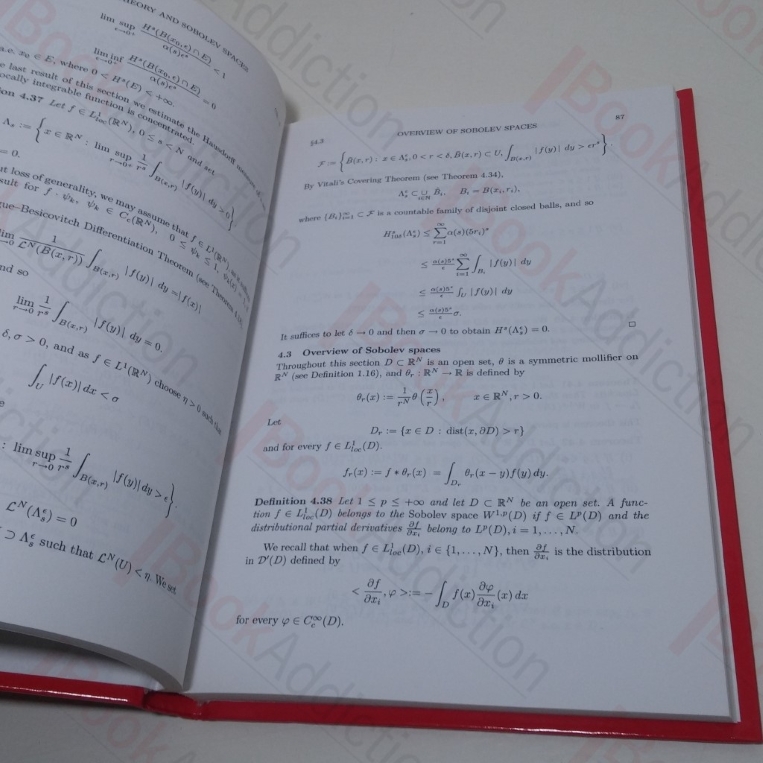 THEORY AND SOBOLEV SPACES
lim sup H^s(B(x_0,ε)∩E) / α(s)ε^s < 1
ε→0^+
lim inf H^s(B(x_0,ε)∩E) / α(s)ε^s = 0
ε→0^+
a.e. x_0 ∈ E, where 0 < H^s(E) < +∞.
last result of this section we estimate the Hausdorff
ocally integrable function is concentrated.
on 4.37 Let f ∈ L^1_loc(ℝ^N), 0 ≤ s < N and set
Λ_s := { x ∈ ℝ^N : lim sup_{r→0+} 1/r^s ∫_{B(x,r)} |f(y)| dy > 0 }
= 0.
ut loss of generality, we may assume that f ∈ L^1(ℝ^N)
sult for f · ψ_k, ψ_k ∈ C_c(ℝ^N), 0 ≤ ψ_k ≤ 1,
gue–Besicovitch Differentiation Theorem (see Theorem
lim_{r→0} 1/L^N(B(x,r)) ∫_{B(x,r)} |f(y)| dy = |f(x)|
nd so
lim_{r→0} 1/r^s ∫_{B(x,r)} |f(y)| dy = 0.
δ, σ > 0, and as f ∈ L^1(ℝ^N) choose η > 0 such that
∫_U |f(x)| dx < σ
: lim sup_{r→0} 1/r^s ∫_{B(x,r)} |f(y)| dy > ε }
L^N(Λ^ε_s) = 0
⊃ Λ^ε_s such that L^N(U) < η. We set
§4.3 OVERVIEW OF SOBOLEV SPACES 87
F := { B(x,r) : x ∈ Λ^ε_s, 0 < r < δ, B(x,r) ⊂ U, ∫_{B(x,r)} |f(y)| dy > εr^s }.
By Vitali's Covering Theorem (see Theorem 4.34),
Λ^ε_s ⊂ ∪_{i∈N} B̂_i, B_i = B(x_i, r_i),
where {B_i}^∞_{i=1} ⊂ F is a countable family of disjoint closed balls, and so
H^s_{10δ}(Λ^ε_s) ≤ Σ^∞_{i=1} α(s)(5r_i)^s
≤ α(s)5^s/ε Σ^∞_{i=1} ∫_{B_i} |f(y)| dy
≤ α(s)5^s/ε ∫_U |f(y)| dy
≤ α(s)5^s/ε σ.
It suffices to let δ → 0 and then σ → 0 to obtain H^s(Λ^ε_s) = 0. □
4.3 Overview of Sobolev spaces
Throughout this section D ⊂ ℝ^N is an open set, θ is a symmetric mollifier on
ℝ^N (see Definition 1.16), and θ_r : ℝ^N → ℝ is defined by
θ_r(x) := 1/r^N θ(x/r), x ∈ ℝ^N, r > 0.
Let
D_r := {x ∈ D : dist(x, ∂D) > r}
and for every f ∈ L^1_loc(D).
f_r(x) := f ∗ θ_r(x) = ∫_{D_r} θ_r(x − y)f(y) dy.
Definition 4.38 Let 1 ≤ p ≤ +∞ and let D ⊂ ℝ^N be an open set. A func-
tion f ∈ L^1_loc(D) belongs to the Sobolev space W^{1,p}(D) if f ∈ L^p(D) and the
distributional partial derivatives ∂f/∂x_i belong to L^p(D), i = 1, . . . , N.
We recall that when f ∈ L^1_loc(D), i ∈ {1, . . . , N}, then ∂f/∂x_i is the distribution
in D′(D) defined by
< ∂f/∂x_i, φ >:= − ∫_D f(x) ∂φ/∂x_i (x) dx
for every φ ∈ C^∞_c(D).
BookAddiction